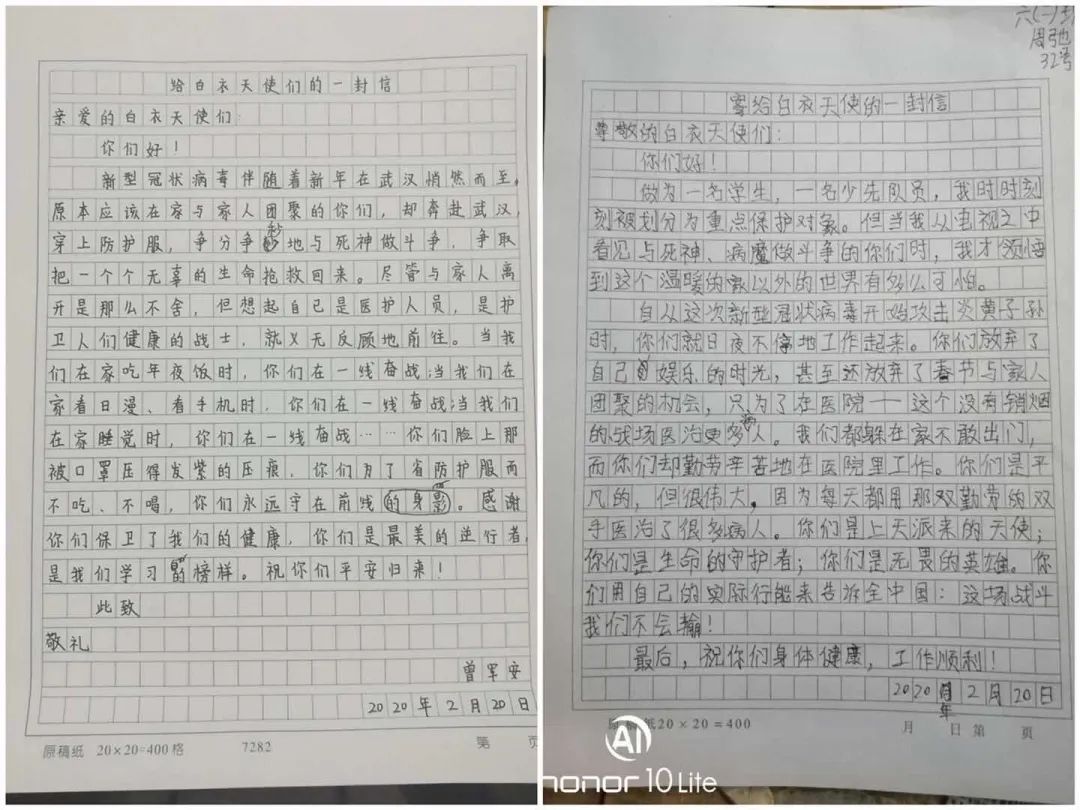 给白衣天使们的一封信
亲爱的白衣天使们:
你们好!
新型冠状病毒伴随着新年在武汉悄然而至。
原本应该在家与家人团聚的你们,却奔赴武汉,
穿上防护服,争分争秒地与死神做斗争,争取
把一个个无辜的生命抢救回来。尽管与家人离
开是那么不舍,但想起自己是医护人员,是护
卫人们健康的战士,就义无反顾地前往。当我
们在家吃年夜饭时,你们在一线奋战;当我们在
家看日漫、看手机时,你们在一线奋战;当我们
在家睡觉时,你们在一线奋战……你们脸上那
被口罩压得发紫的压痕,你们为了省防护服而
不吃、不喝,你们永远守在前线的身影。感谢
你们保卫了我们的健康,你们是最美的逆行者,
是我们学习的榜样。祝你们平安归来!
此致
敬礼
曾军安
2020年2月20日
原稿纸 20×20=400格 7282 第 页
六(一)班
周弛
32号
写给白衣天使的一封信
尊敬的白衣天使们:
你们好!
做为一名学生,一名少先队员,我时时刻
刻被划分为重点保护对象。但当我从电视之中
看见与死神、病魔做斗争的你们时,我才领悟
到这个温暖的家以外的世界有多么可怕。
自从这次新型冠状病毒开始攻击炎黄子孙
时,你们就日夜不停地工作起来。你们放弃了
自己的娱乐的时光,甚至还放弃了春节与家人
团聚的机会,只为了在医院——这个没有销烟
的战场医治更多病人。我们都躲在家不敢出门,
而你们却勤劳辛苦地在医院里工作。你们是平
凡的,但很伟大。因为每天都用那双勤劳的双
手医治了很多病人。你们是上天派来的天使;
你们是生命的守护者;你们是无畏的英雄。你
们用自己的实际行能来告诉全中国:这场战斗
我们不会输!
最后,祝你们身体健康,工作顺利!
2020年2月20日
原稿纸20×20=400 月 日第 页
AI
honor 10 Lite